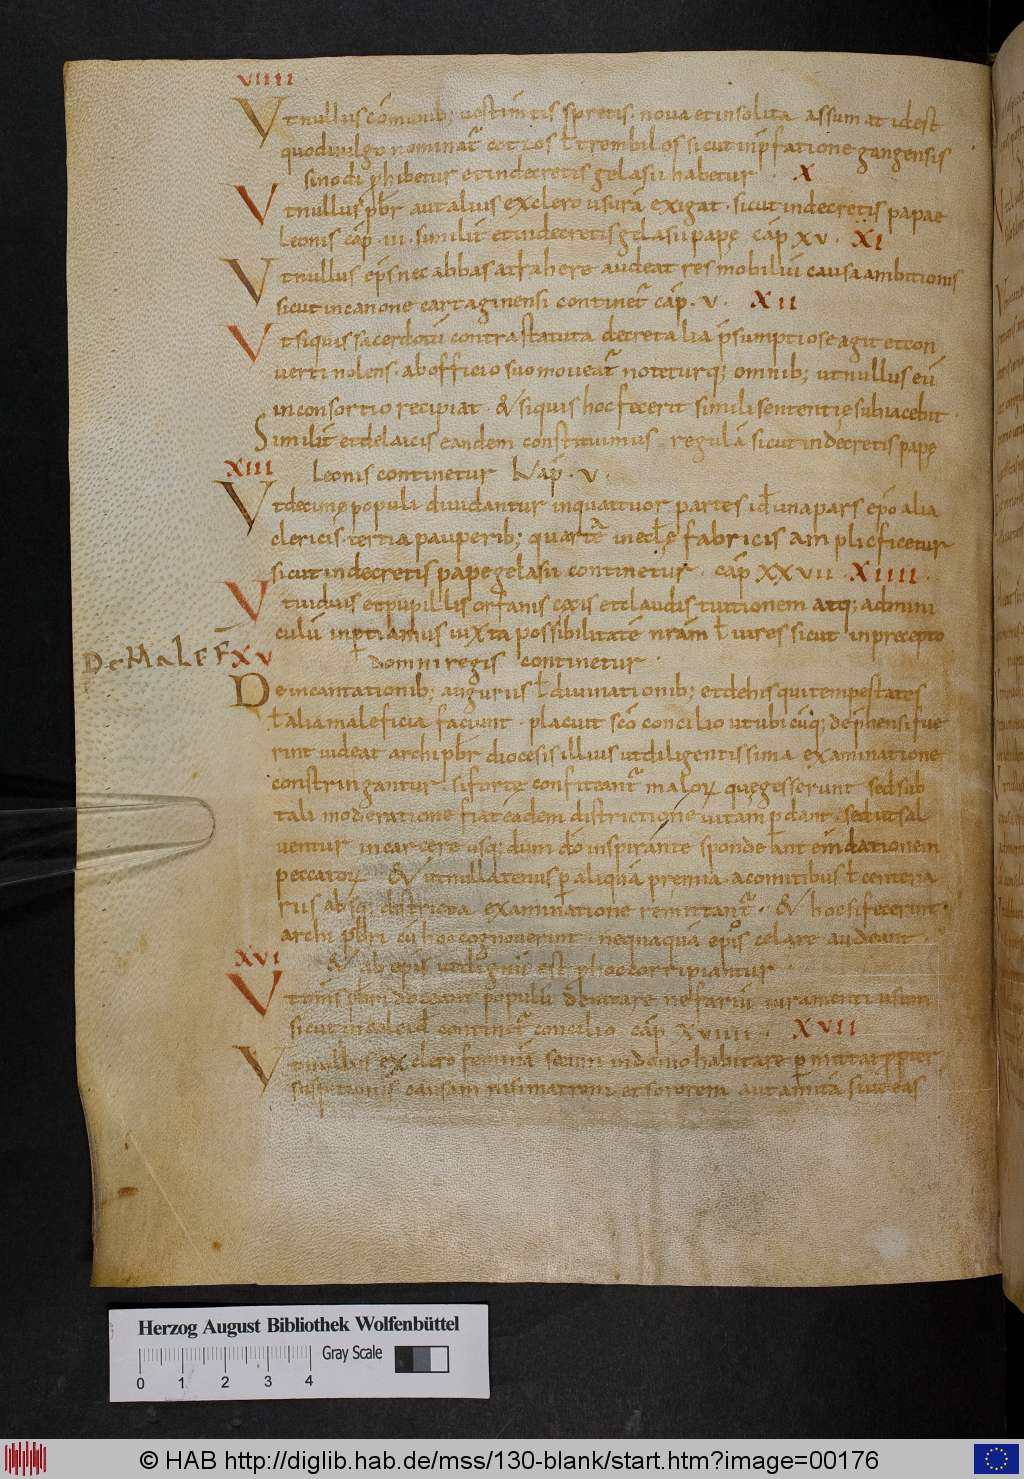 VIIII
Vt nullus cōmunib; vestimtis spretis. nova et insolita assumat id est
quod vulgo nominat̄ cotzos ł trembilos sicut in p̄fatione gangensis
sinodi p̄hibetur et in decretis gelasii habetur . X
Vt nullus pb̄r aut alius ex clero usurā exigat. sicut in decretis papae
leonis cāp. iii. similit̄ et in decretis gelasii papę cāp xv. XI
Vt nullus ep̄s nec abbas atrahere audeat res mobiliū causa ambitionis
sicut in canone cartaginensi continet̄ cāp. v. XII
Vt si quis sacerdotū contra statuta decretalia p̄sumptiose agit et con
verti nolens. ab officio suo moveat̄ noteturq; omnib; ut nullus eū
in consortio recipiat. & si quis hoc fecerit simili sententię subiacebit.
Similit̄ et de laicis eandem constituimus regulā sicut in decretis papę
XIII leonis continetur kāp. v.
Vt decimę populi dividantur in quattuor partes id ē una pars ep̄o alia
clericis. tertia pauperib; quarta in eccl̄ę fabricis amplicficetur
sicut in decretis pape gelasii continetur. cāp XXVII. XIIII.
Vt viduis et pupillis orfanis cęcis et claudis tuitionem atq; admini
culū inptiamus iuxta possibilitatē nrām ł vires sicut in precepto
De MALEF̄ XV domni regis continetur.
De incantationib; auguriis ł divinationib; et de his qui tempestates
ł alia maleficia faciunt. placuit scō concilio ut ubicūq; dep̄hensi fue
rint videat archipb̄r diocesis illius ut diligentissima examinatione
constringantur. si forte confiteant̄ malorꝝ quę gesserunt sed sub
tali moderatione fiat eadem districtione vitam pdant. sed ut sal
ventur in carcere usq; dum dō inspirante spondeant emdationem
peccatorꝝ & ut nullatenus p aliquā premia. a comitibus ł centena
rius absq; districta examinatione remittant̄. & hoc si fecerint.
archipb̄ri cū hoc cognoverint. nequaquā epīs celare audeant
& ab epīs ut dignū est p hoc corripiantur
XVI
Vt omīs pb̄ri doceant populū devitare nefariū iuramenti usum
sicut in caleid continet̄ concilio cāp XVIIII. XVII
Vt nullus ex clero feminā secum in domo habitare pmittat pp̄ter
suspitionis causam nisi matrem et sororem aut amitā sive eas
Herzog August Bibliothek Wolfenbüttel
Gray Scale
0 1 2 3 4
© HAB http://diglib.hab.de/mss/130-blank/start.htm?image=00176